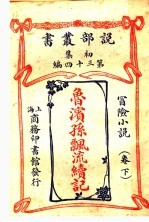 說部叢書
初集
第三十四編
冒險小說
魯濱孫飄流續記
卷下
上海商務印書館發行